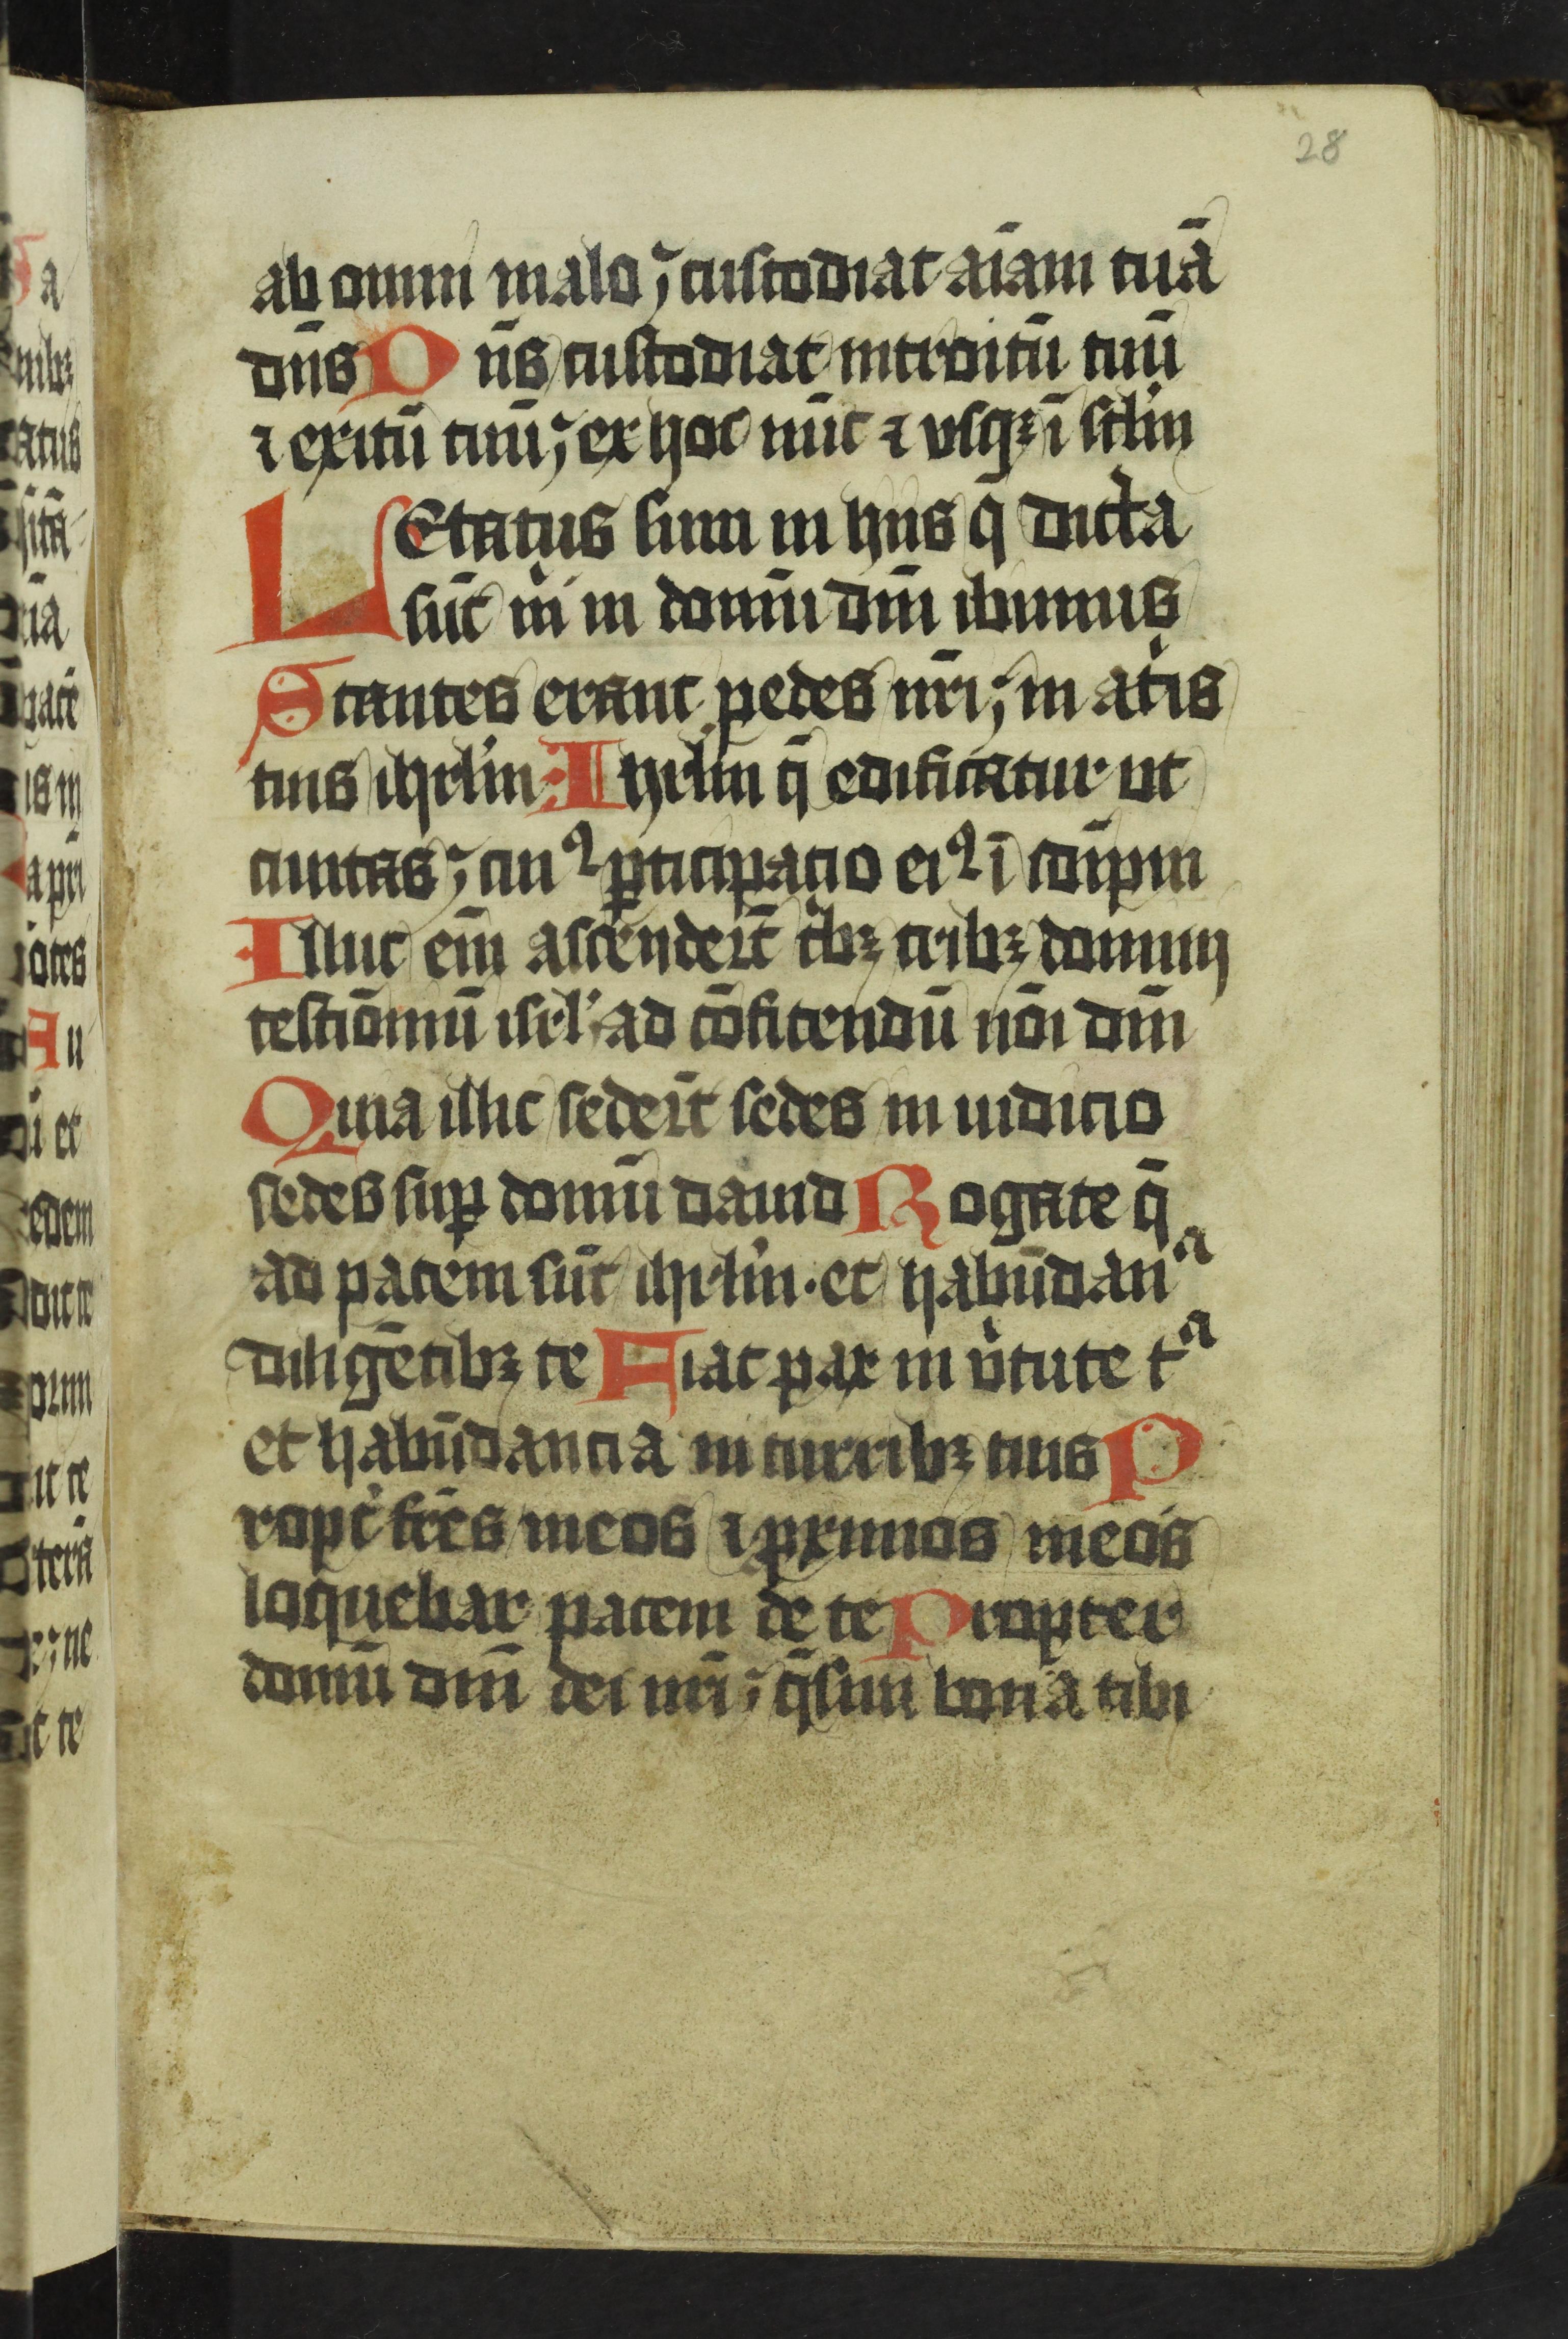 28
ab omni malo ; custodiat aīam tuā
dn̄s Dn̄s custodiat introitū tuū
⁊ exitū tuū ; ex hoc nūc ⁊ vsqꝫ ī sc̄lm
LEtatus sum in hiis q̄ dicta
sūt m̍ in domū dn̄i ibimus
Stantes erant pedes nr̄i ; in at̍is
tuis ihrl̍m Ihrl̍m q̄ edificatur ut
ciuitas ; cuiꝰ ꝑticipatio eiꝰ ī idīpm
Illuc em̄ ascender̄t t̍bꝫ tribꝫ domini
testiōniū isrl̍ ad cōfitendū nōi dn̄i
Quia illic seder̄t sedes in iudicio
sedes suꝑ domū dauid Rogate q̄
ad pacem sūt ihrl̍m · et habūdanᵃ
diligētibꝫ te Fiat pax in v̍tute tᵃ
et habūdantia in turribꝫ tuis P
ropt̍ fr̄es meos ⁊ ꝓximos meos
loquebar pacem de te Propter
domū dn̄i dei nr̄i ; q̄siui bona tibi